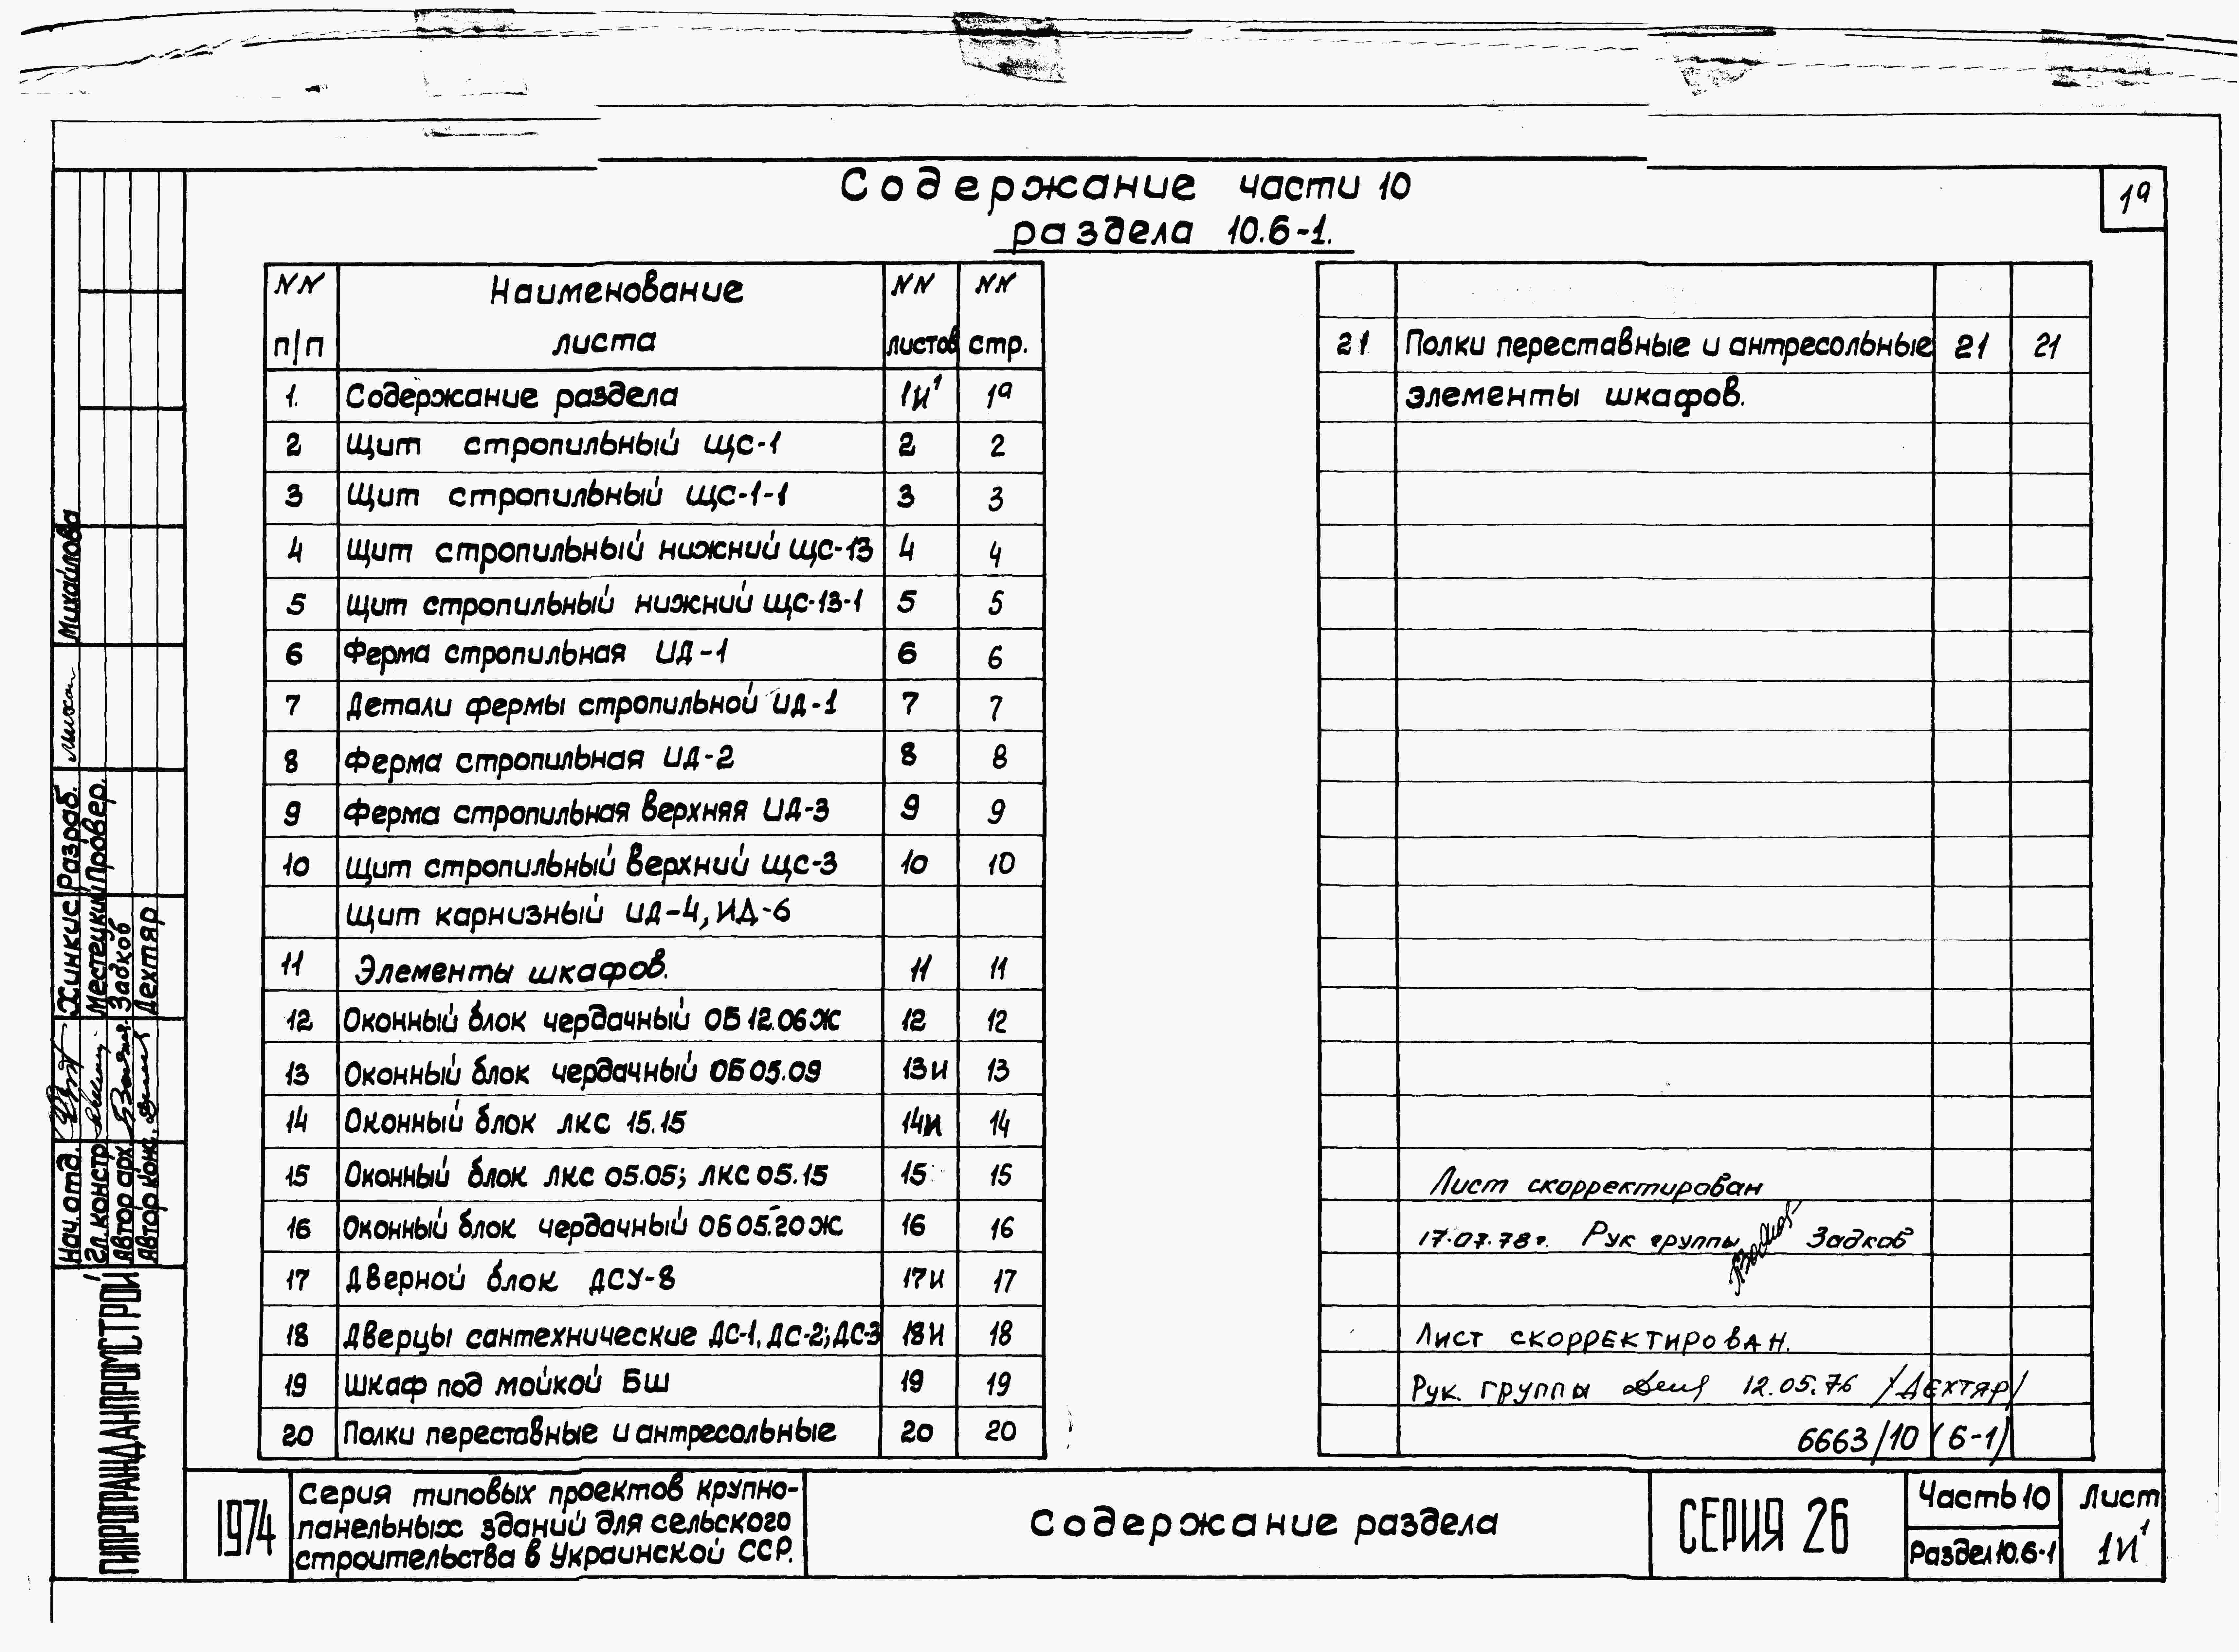 Содержание части 10
раздела 10.6-1.
1а
NN п/п Наименование листа NN листов NN стр.
1. Содержание раздела 1И¹ 1а
2 Щит стропильный ЩС-1 2 2
3 Щит стропильный ЩС-1-1 3 3
4 Щит стропильный нижний ЩС-13 4 4
5 Щит стропильный нижний ЩС-13-1 5 5
6 Ферма стропильная ИД-1 6 6
7 Детали фермы стропильной ИД-1 7 7
8 Ферма стропильная ИД-2 8 8
9 Ферма стропильная верхняя ИД-3 9 9
10 Щит стропильный верхний ЩС-3 10 10
Щит карнизный ИД-4, ИД-6
11 Элементы шкафов. 11 11
12 Оконный блок чердачный ОБ 12.06Ж 12 12
13 Оконный блок чердачный ОБ 05.09 13И 13
14 Оконный блок ЛКС 15.15 14И 14
15 Оконный блок ЛКС 05.05; ЛКС 05.15 15 15
16 Оконный блок чердачный ОБ 05.20Ж 16 16
17 Дверной блок ДСУ-8 17И 17
18 Дверцы сантехнические ДС-1, ДС-2; ДС-3 18И 18
19 Шкаф под мойкой БШ 19 19
20 Полки переставные и антресольные 20 20
21 Полки переставные и антресольные 21 21
элементы шкафов.
Лист скорректирован
17.07.78г. Рук группы Задков
Лист скорректирован.
Рук. группы 12.05.76 /Дехтяр/
6663/10 (6-1)
Разраб. Михайлова
Провер.
Нач. отд. Хинкис
Гл. констр Местецкий
Автор арх. Задков
Автор конс. Дехтяр
ГИПРОГРАЖДАНПРОМСТРОЙ
1974
Серия типовых проектов крупно-
панельных зданий для сельского
строительства в Украинской ССР.
Содержание раздела
СЕРИЯ 26
Часть 10
Раздел 10.6-1
Лист
1И¹